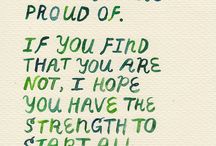 PROUD OF.
IF YOU FIND
THAT YOU ARE
NOT, I HOPE
YOU HAVE THE
STRENGTH TO
START ALL